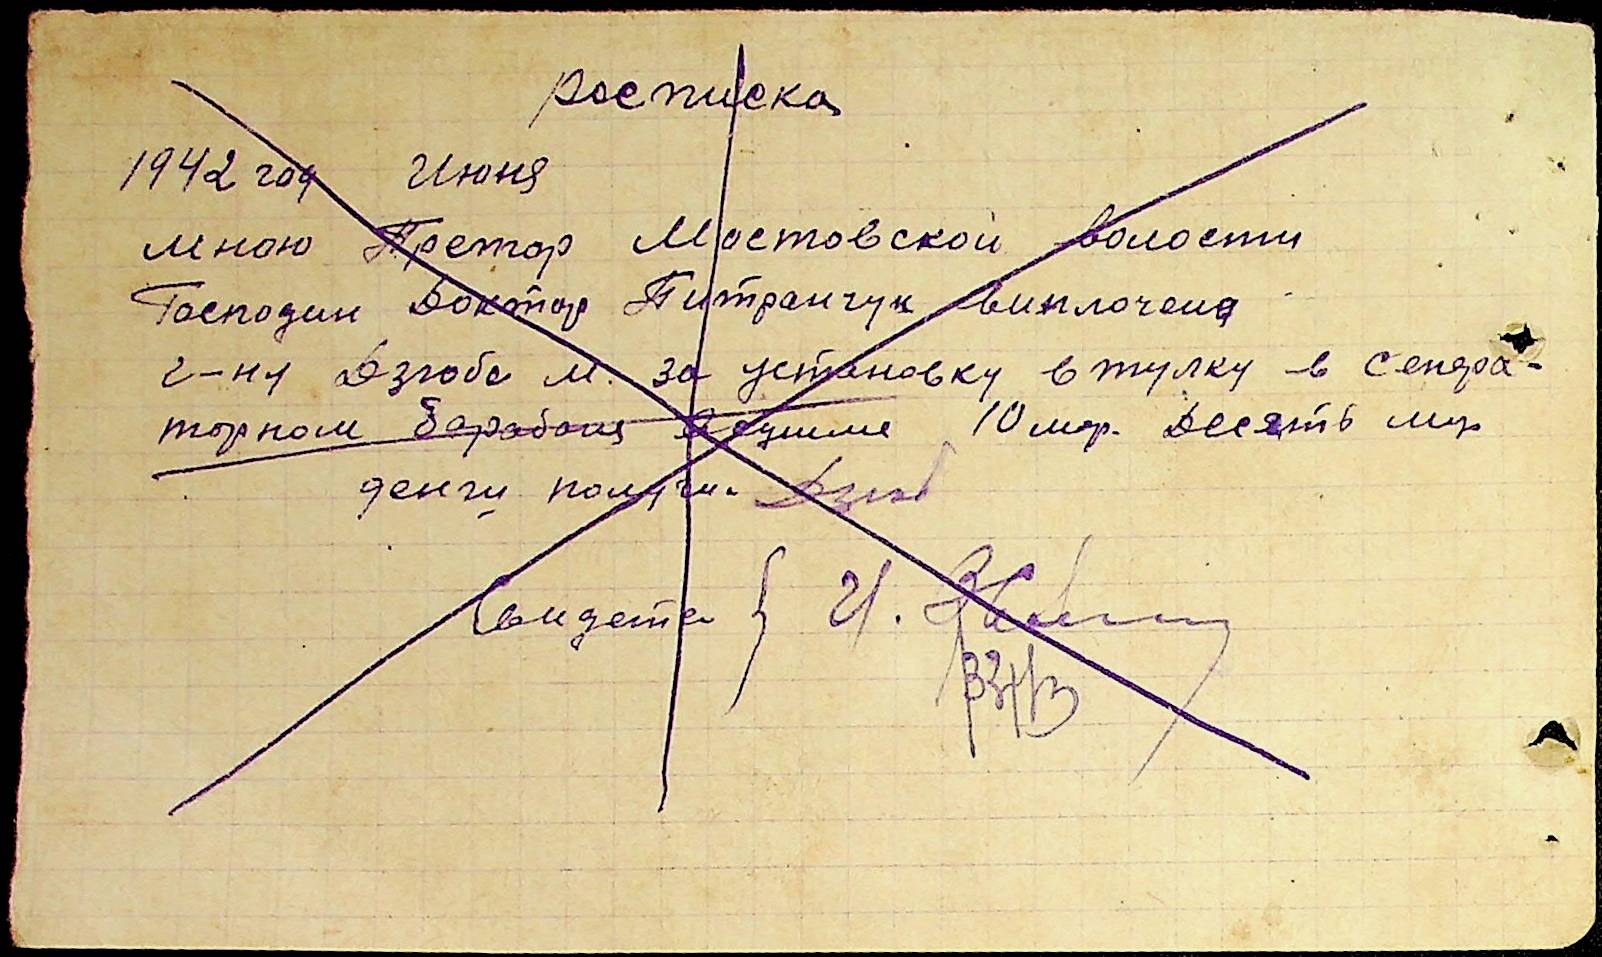 росписка
1942 год Июня
мною Претор Мостовской волости
Господин Доктор Питранчук виплочена
г-ну Дзюбе м. за установку втулку в сепара-
торном барабана 10 мар. Десять мар
денги получи
Свидете } И.